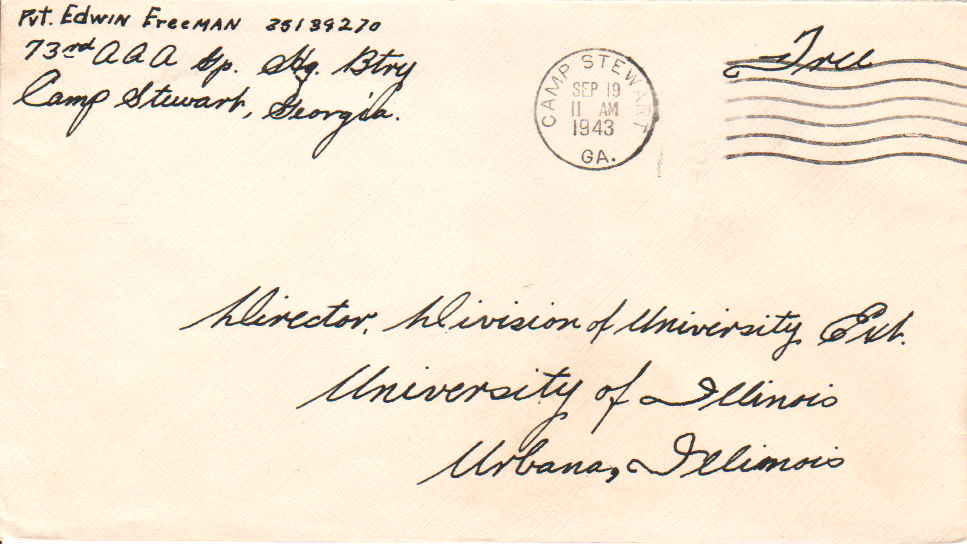 Pvt. Edwin Freeman 35139270
73rd AAA Gp. Hq. Btry
Camp Stewart, Georgia.
CAMP STEWART
SEP 19
11 AM
1943
GA.
Free
Director, Division of University Ext.
University of Illinois
Urbana, Illinois